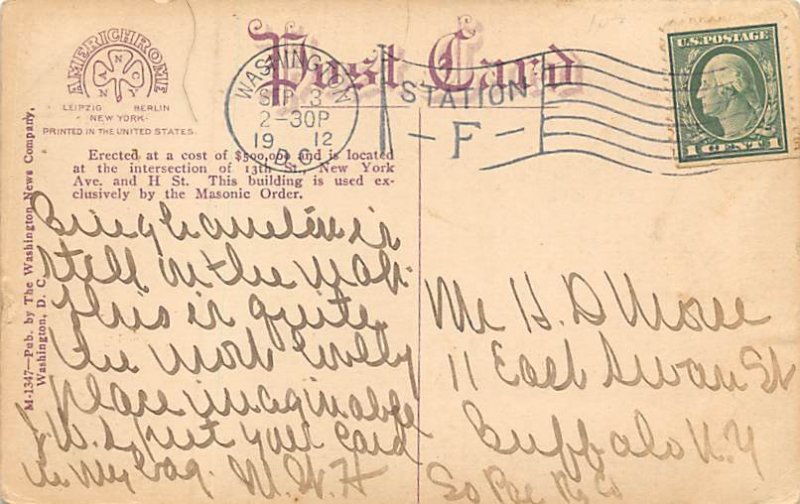 AMERICHROME
A N
N C
N Y
LEIPZIG BERLIN
NEW YORK
PRINTED IN THE UNITED STATES
Post Card
WASHINGTON
SEP 3
2-30P
19 12
D.C.
STATION
F
U.S. POSTAGE
1 CENT 1
Erected at a cost of $500,000 and is located
at the intersection of 13th St., New York
Ave. and H St. This building is used ex-
clusively by the Masonic Order.
M-1347—Pub. by The Washington News Company,
Washington, D. C.
Binghamton is
still on the map.
This is quite
the most lovely
place imaginable
J. W. L. put your card
in my bag. M. W. H
Mr H. D
11 East Swan St
Buffalo N. Y
So Pac Ry Co